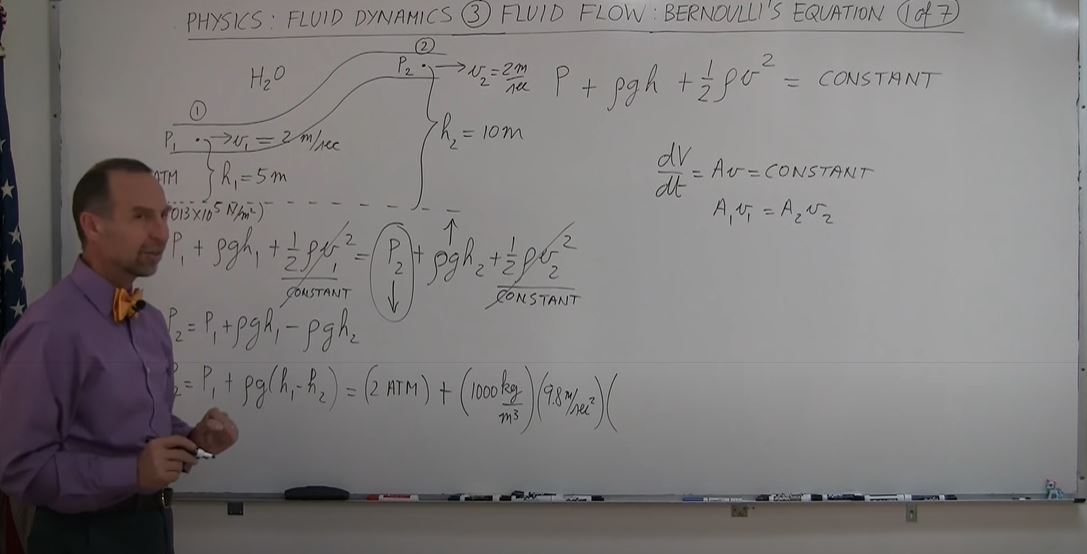 PHYSICS: FLUID DYNAMICS ③ FLUID FLOW: BERNOULLI'S EQUATION 1 of 7
②
H₂O P₂ → v₂ = 2 m/sec P + ρgh + ½ρv² = CONSTANT
①
P₁ → v₁ = 2 m/sec h₂ = 10m
dV/dt = Av = CONSTANT
ATM h₁ = 5m
A₁v₁ = A₂v₂
013X10⁵ N/m²)
P₁ + ρgh₁ + ½ρv₁² = P₂ + ρgh₂ + ½ρv₂²
CONSTANT CONSTANT
P₂ = P₁ + ρgh₁ - ρgh₂
P₂ = P₁ + ρg(h₁-h₂) = (2 ATM) + (1000 kg/m³)(9.8 m/sec²)(